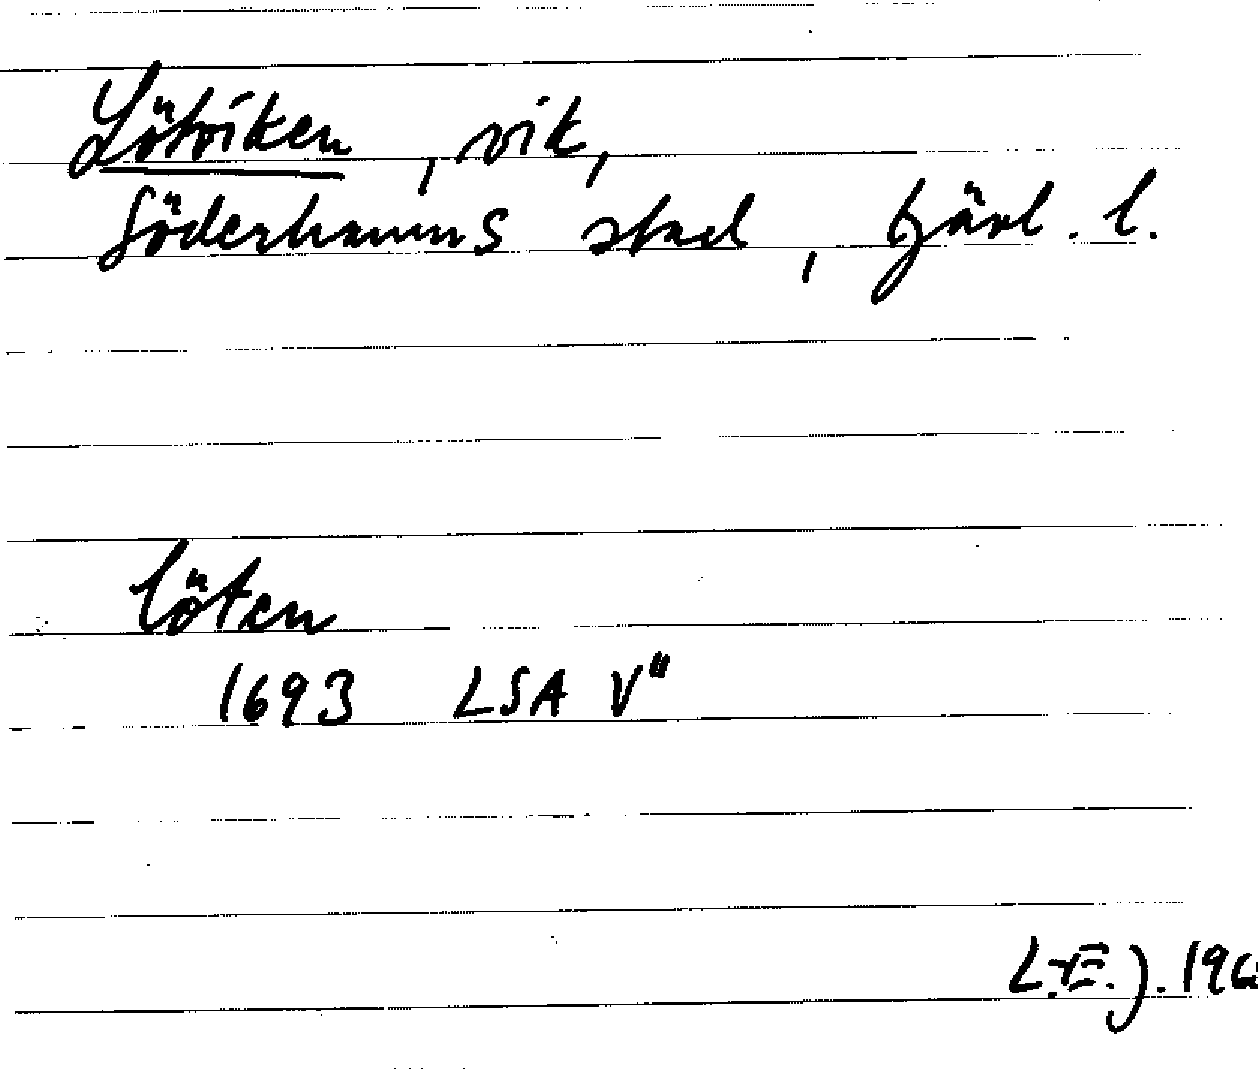 Lötviken, vik,
Söderhamns stad, Gävl. l.
löten
1693 LSA V"
L.-E. J. 196